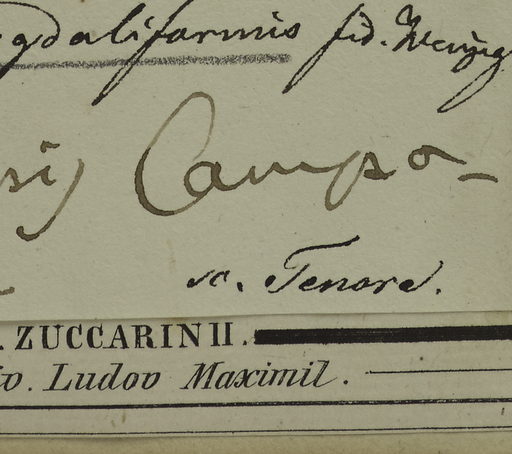 gdaliformis fid. Wenzig
Campo-
sc. Tenore.
. ZUCCARINII.
iv. Ludov Maximil.